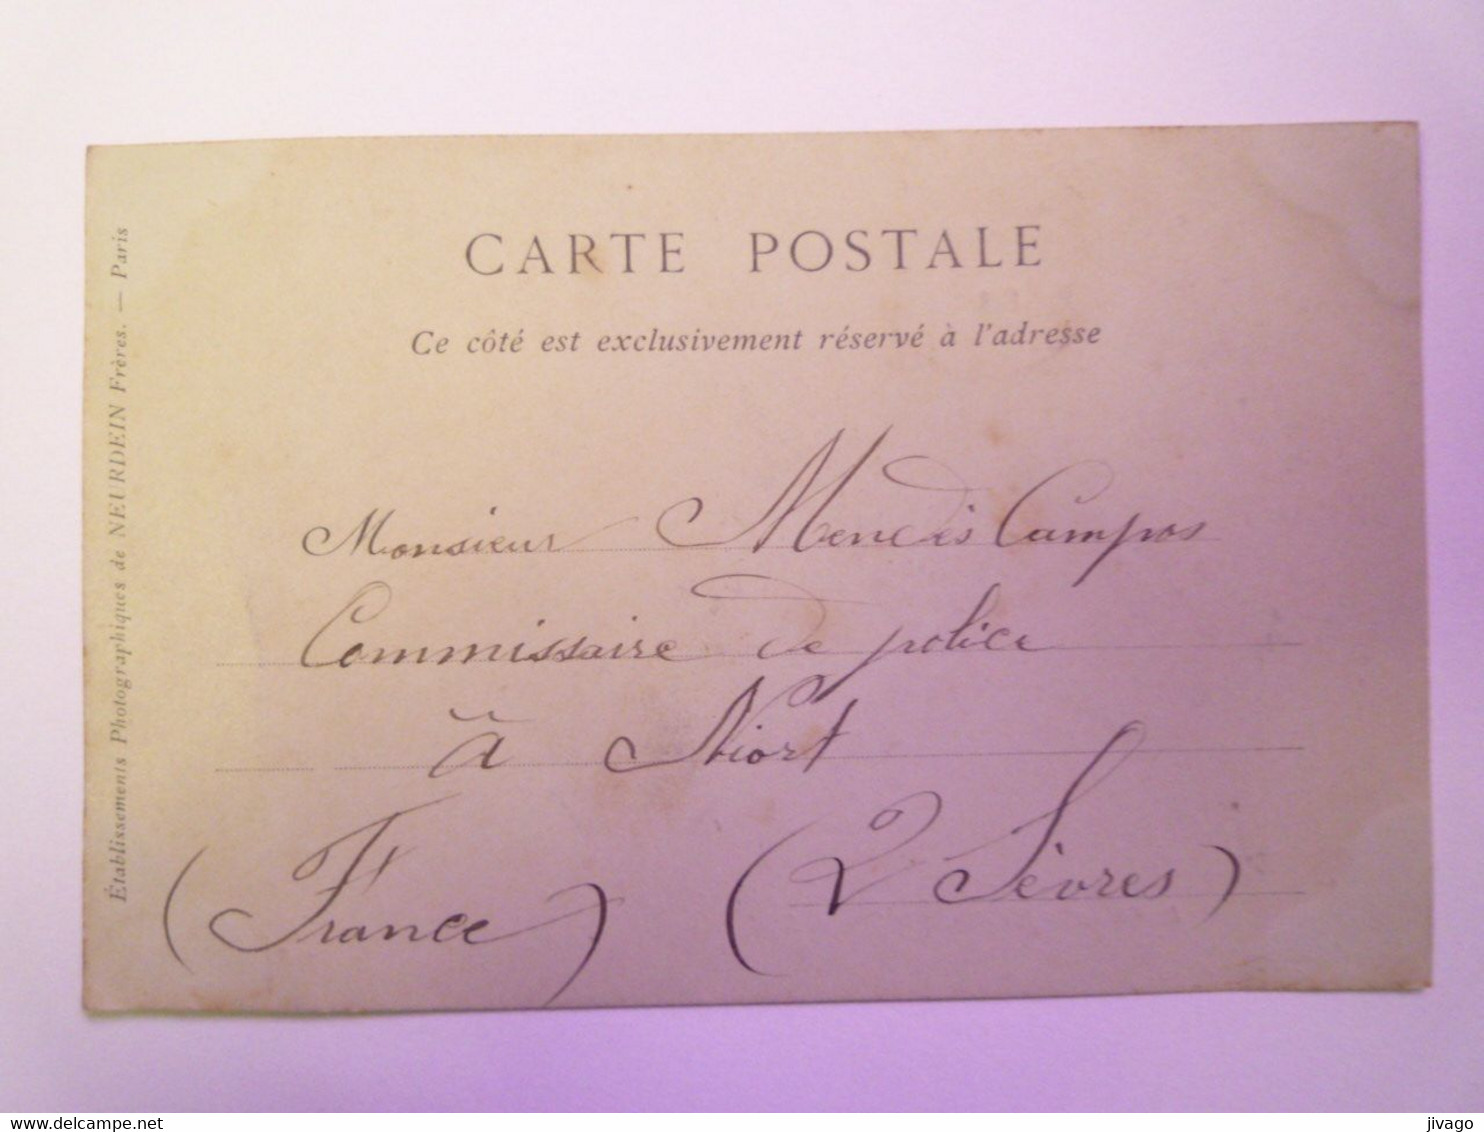 CARTE POSTALE
Ce côté est exclusivement réservé à l'adresse
Monsieur Mendès Campos
Commissaire de police
à Niort
(France) (2 Sèvres)
Établissements Photographiques de NEURDEIN Frères. — Paris
www.delcampe.net
jivago